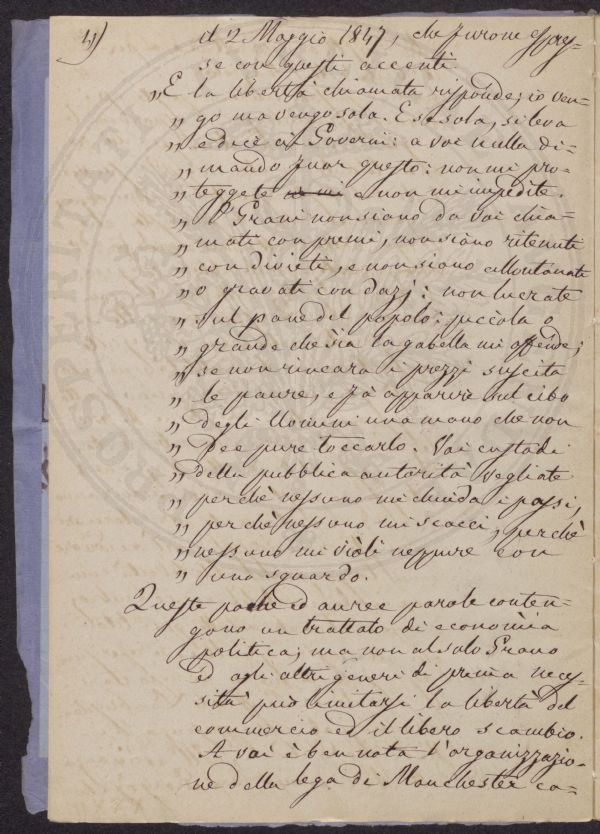 4)
il 2 Maggio 1847, che furono espres-
se con questi accenti
„E la libertà chiamata risponde; io ven-
„ go ma vengo sola. E sì sola, si leva
„ e dice ai Governi: a voi nulla di-
„ mando fuor questo: non mi pro-
„ teggete e non mi impedite.
„ I Grani non siano da voi chia-
„ mati con premi, non siano ritenuti
„ con divieti, e non siano allontanati
„ o gravati con dazj: non lucrate
„ sul pane del popolo: piccola o
„ grande che sia la gabella mi offende;
„ se non rincara i prezzi suscita
„ le paure, e fà apparire sul cibo
„ degli Uomini una mano che non
„ dee pure toccarlo. Voi custodi
„ della pubblica autorità vegliate
„ perchè nessuno mi chiuda i passi,
„ perchè nessuno mi scacci, perchè
„ nessuno mi violi neppure con
„ uno sguardo.
Queste poche ed auree parole conten-
gono un trattato di economia
politica; ma non al solo Grano
ed agli altri generi di prima neces-
sità può limitarsi la libertà del
commercio ed il libero scambio.
A voi è ben nota l'organizzazio-
ne della lega di Manchester co-
PROSPERITATI